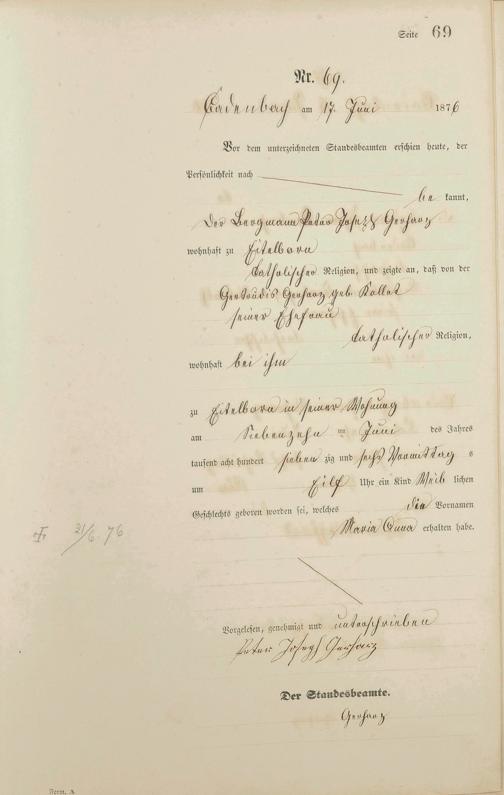 Seite 69
Nr. 69.
Cadenbach am 17. Juni 1876
Vor dem unterzeichneten Standesbeamten erschien heute, der
Persönlichkeit nach
be kannt,
der Bergmann Peter Joseph Gerharz
wohnhaft zu Eitelborn
katholischer Religion, und zeigte an, daß von der
Gertrudis Gerharz geb. Kollet
seiner Ehefrau
katholischer Religion,
wohnhaft bei ihm
zu Eitelborn in seiner Wohnung
am Siebenzehn ten Juni des Jahres
tausend acht hundert sieben zig und sechs Vormittag s
um Eilf Uhr ein Kind Weib lichen
Geschlechts geboren worden sei, welches die Vornamen
Maria Anna erhalten habe.
21/6. 76
Vorgelesen, genehmigt und unterschrieben
Peter Joseph Gerharz
Der Standesbeamte.
Gerharz
Form. A